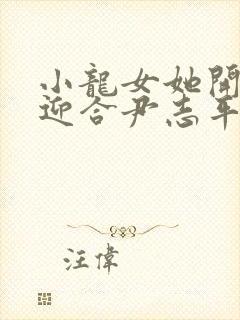 小龍女她開
迎合尹志平
汪偉